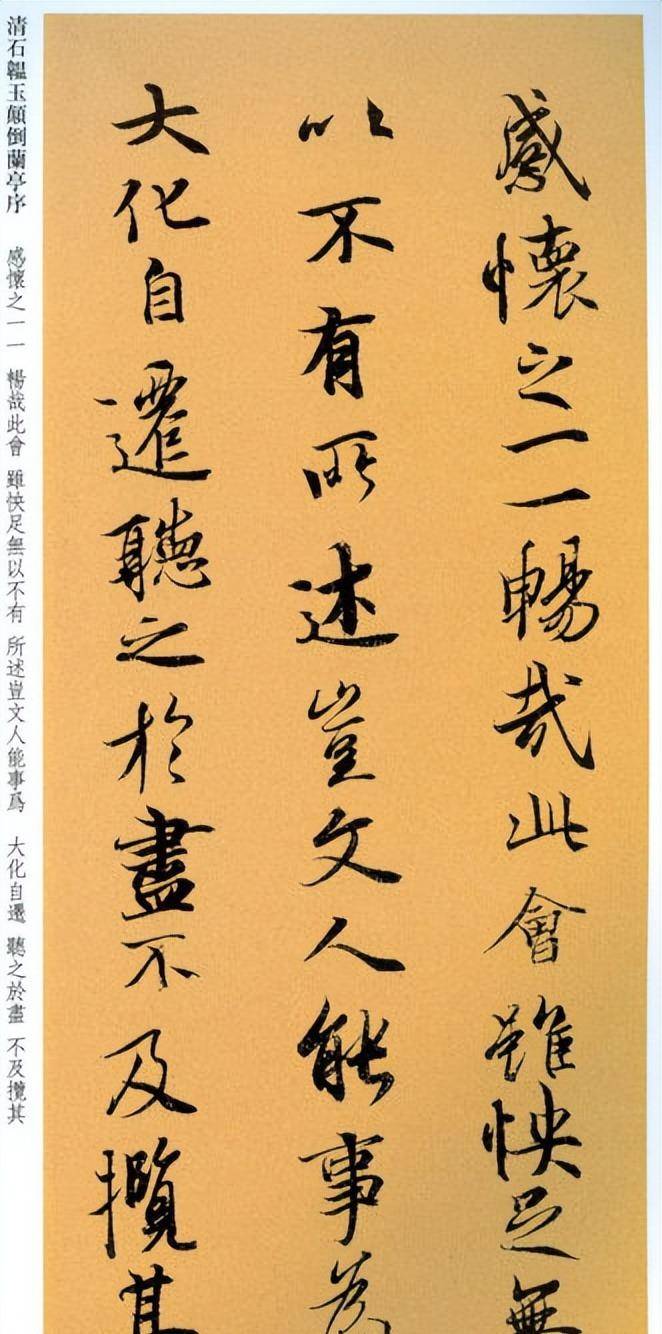 感懷之一一暢哉此會雖怏足無
以不有所述豈文人能事為
大化自遷聽之於盡不及攬其
清石韞玉顛倒蘭亭序 感懷之一一 暢哉此會 雖快足無以不有 所述豈文人能事爲 大化自遷 聽之於盡 不及攬其